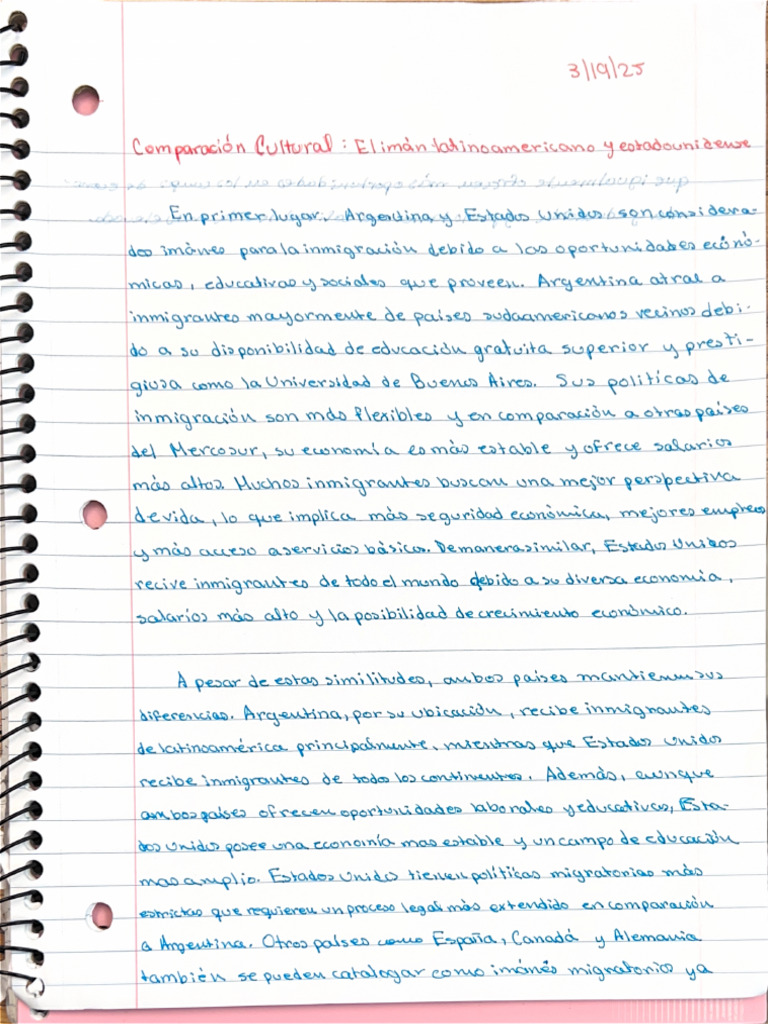 3/19/25
Comparación Cultural: El imán latinoamericano y estadounidense
En primer lugar, Argentina y Estados Unidos son considera-
dos imánes para la inmigración debido a las oportunidades económ-
micas, educativas y sociales que proveen. Argentina atrai a
inmigrantes mayormente de países sudaamericanos vecinos debi-
do a su disponibilidad de educación gratuita superior y presti-
giusa como la Universidad de Buenos Aires. Sus politicas de
inmigración son más flexibles y en comparación a otros países
del Mercosur, su economía es más estable y ofrece salarios
más altos. Muchos inmigrantes buscan una mejor perspectiva
de vida, lo que implica más seguridad económica, mejores empleos
y más acceso a servicios básicos. De manera similar, Estados Unidos
recive inmigrantes de todo el mundo debido a su diversa economía,
salarios más alto y la posibilidad de crecimiento económico.
A pesar de estas similitudes, ambos países mantienen sus
diferencias. Argentina, por su ubicación, recibe inmigrantes
de latinoamérica principalmente, mientras que Estados Unidos
recibe inmigrantes de todos los continentes. Además, aunque
ambos países ofrecen oportunidades laborales y educativas, Esta-
dos Unidos posee una economía mas estable y un campo de educación
mas amplio. Estados Unidos tienen políticas migratorias más
estrictas que requieren un proceso legal más extendido en comparación
a Argentina. Otros países como España, Canadá y Alemania
también se pueden catalogar como imánes migratorios ya